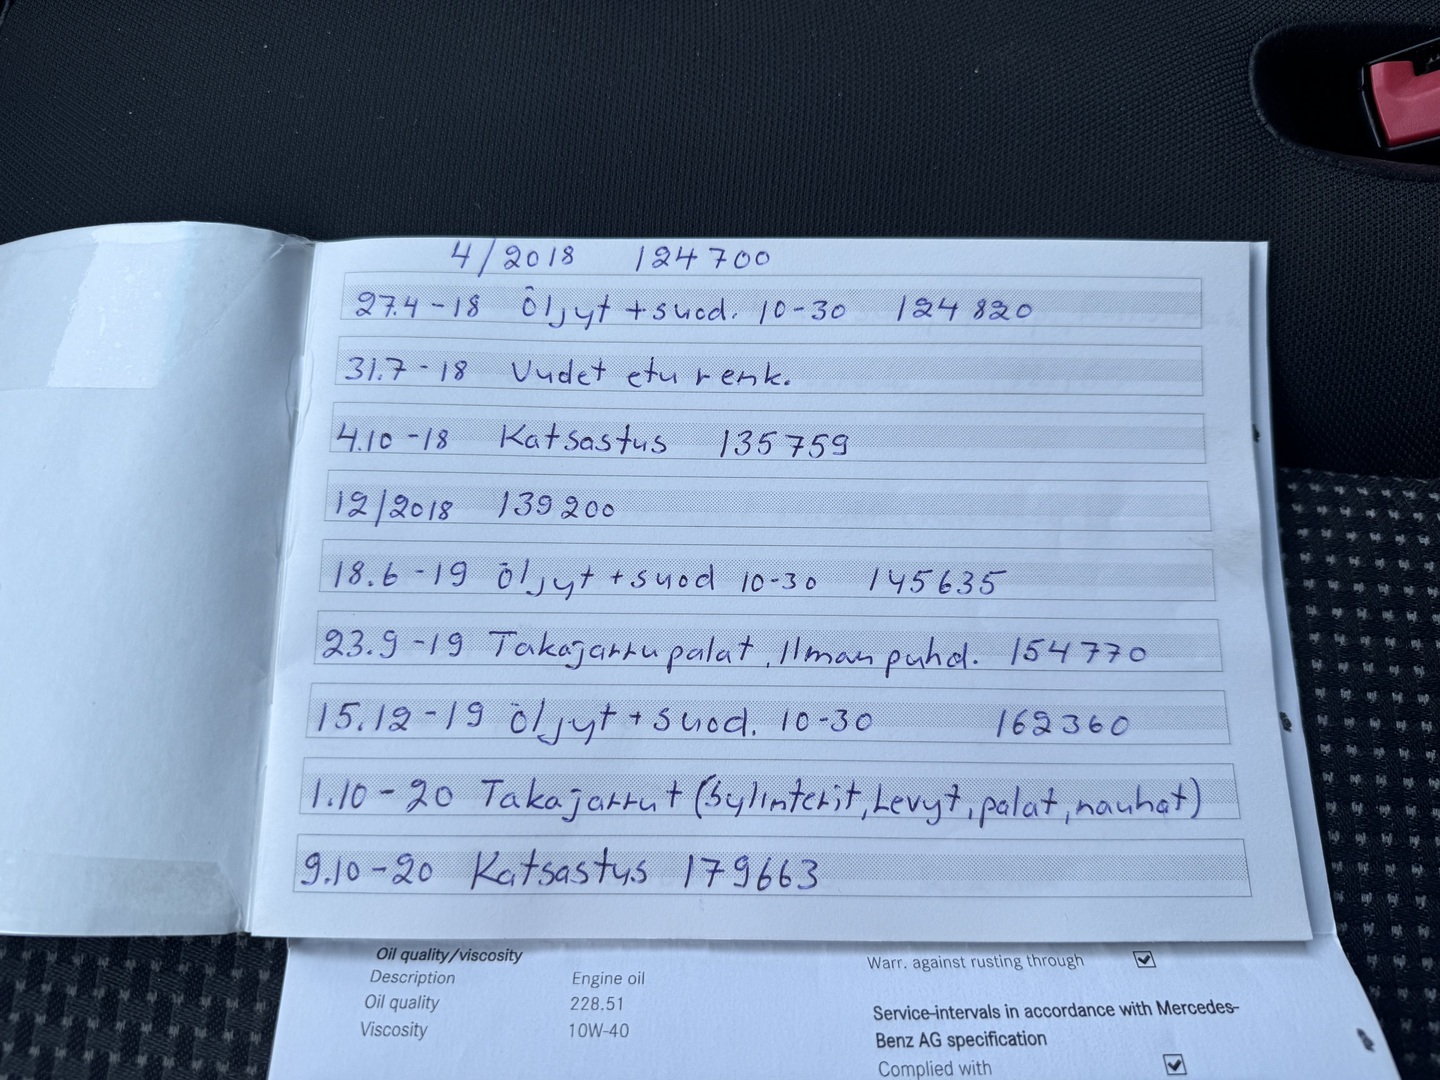 4/2018 124700
27.4-18 Öljyt + suod. 10-30 124820
31.7-18 Uudet etu renk.
4.10-18 Katsastus 135759
12/2018 139200
18.6-19 Öljyt + suod 10-30 145635
23.9-19 Takajarrupalat, Ilman puhd. 154770
15.12-19 Öljyt + suod. 10-30 162360
1.10-20 Takajarrut (Sylinterit, Levyt, palat, nauhat)
9.10-20 Katsastus 179663
Oil quality/viscosity
Description Engine oil
Oil quality 228.51
Viscosity 10W-40
Warr. against rusting through
Service-intervals in accordance with Mercedes-
Benz AG specification
Complied with